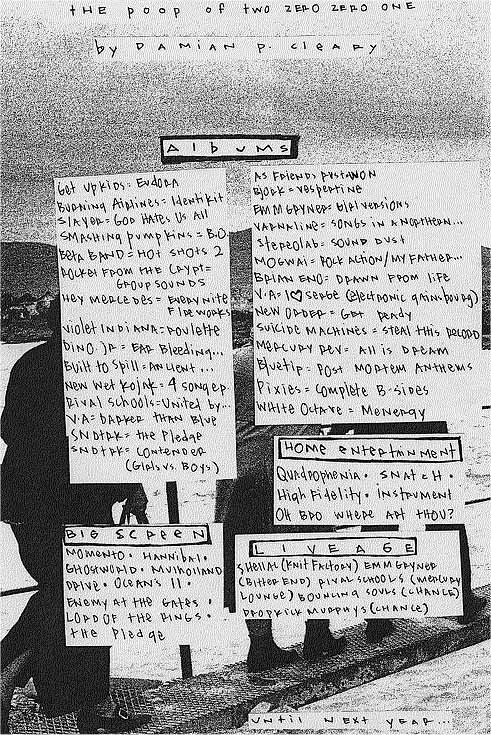 THE POOP OF TWO ZERO ZERO ONE
by DAMIAN P. CLEARY
Albums
Get Up Kids = Eudora
Burning Airlines = Identikit
Slayer = God Hates Us All
Smashing Pumpkins = B.O.
Beta Band = Hot Shots 2
Rocket From the Crypt =
Group Sounds
Hey Mercedes = Everynite
Fireworks
Violet Indiana = Roulette
Dino. Jr = Ear Bleeding...
Built to Spill = Ancient...
New Wet Kojak = 4 song ep.
Rival Schools = United by...
V.A = Darker Than Blue
SNDTRK = The Pledge
SNDTRK = Contender
(Girls vs. Boys)
As Friends Rust = Won
Bjork = Vespertine
Emm Gryner = Girl Versions
Varnaline = Songs in a Northern...
Stereolab = Sound Dust
Mogwai = Rock Action/My Father...
Brian Eno = Drawn From Life
V.A = I ♡ Serge (Electronic Gainsbourg)
New Order = Get Ready
Suicide Machines = Steal This Record
Mercury Rev = All is Dream
Bluetip = Post Mortem Anthems
Pixies = Complete B-Sides
White Octave = Menergy
Home Entertainment
Quadrophenia • Snatch •
High Fidelity • Instrument
Oh Bro Where Art Thou?
BIG SCREEN
Momento • Hannibal •
Ghostworld • Mulholland
Drive • Ocean's 11 •
Enemy at the Gates •
Lord of the Rings •
The Pledge
LIVEAGE
Shellac (Knit Factory) Emm Gryner
(Bitter End) Rival Schools (Mercury
Lounge) Bouncing Souls (Chance)
Dropkick Murphys (Chance)
UNTIL NEXT YEAR...